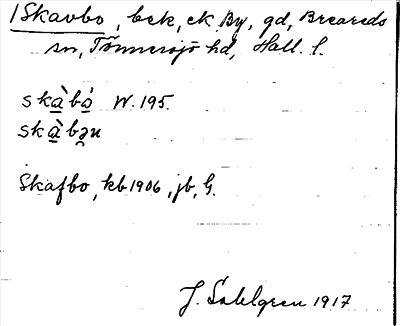 /Skavbo, bek, ck. By, gd, Breareds
sn, Tönnersjö hd, Hall. l.
skà̱bó̱ W. 195.
skà̱bə̱n
Skafbo, kb 1906, jb, G.
J. Sahlgren 1917